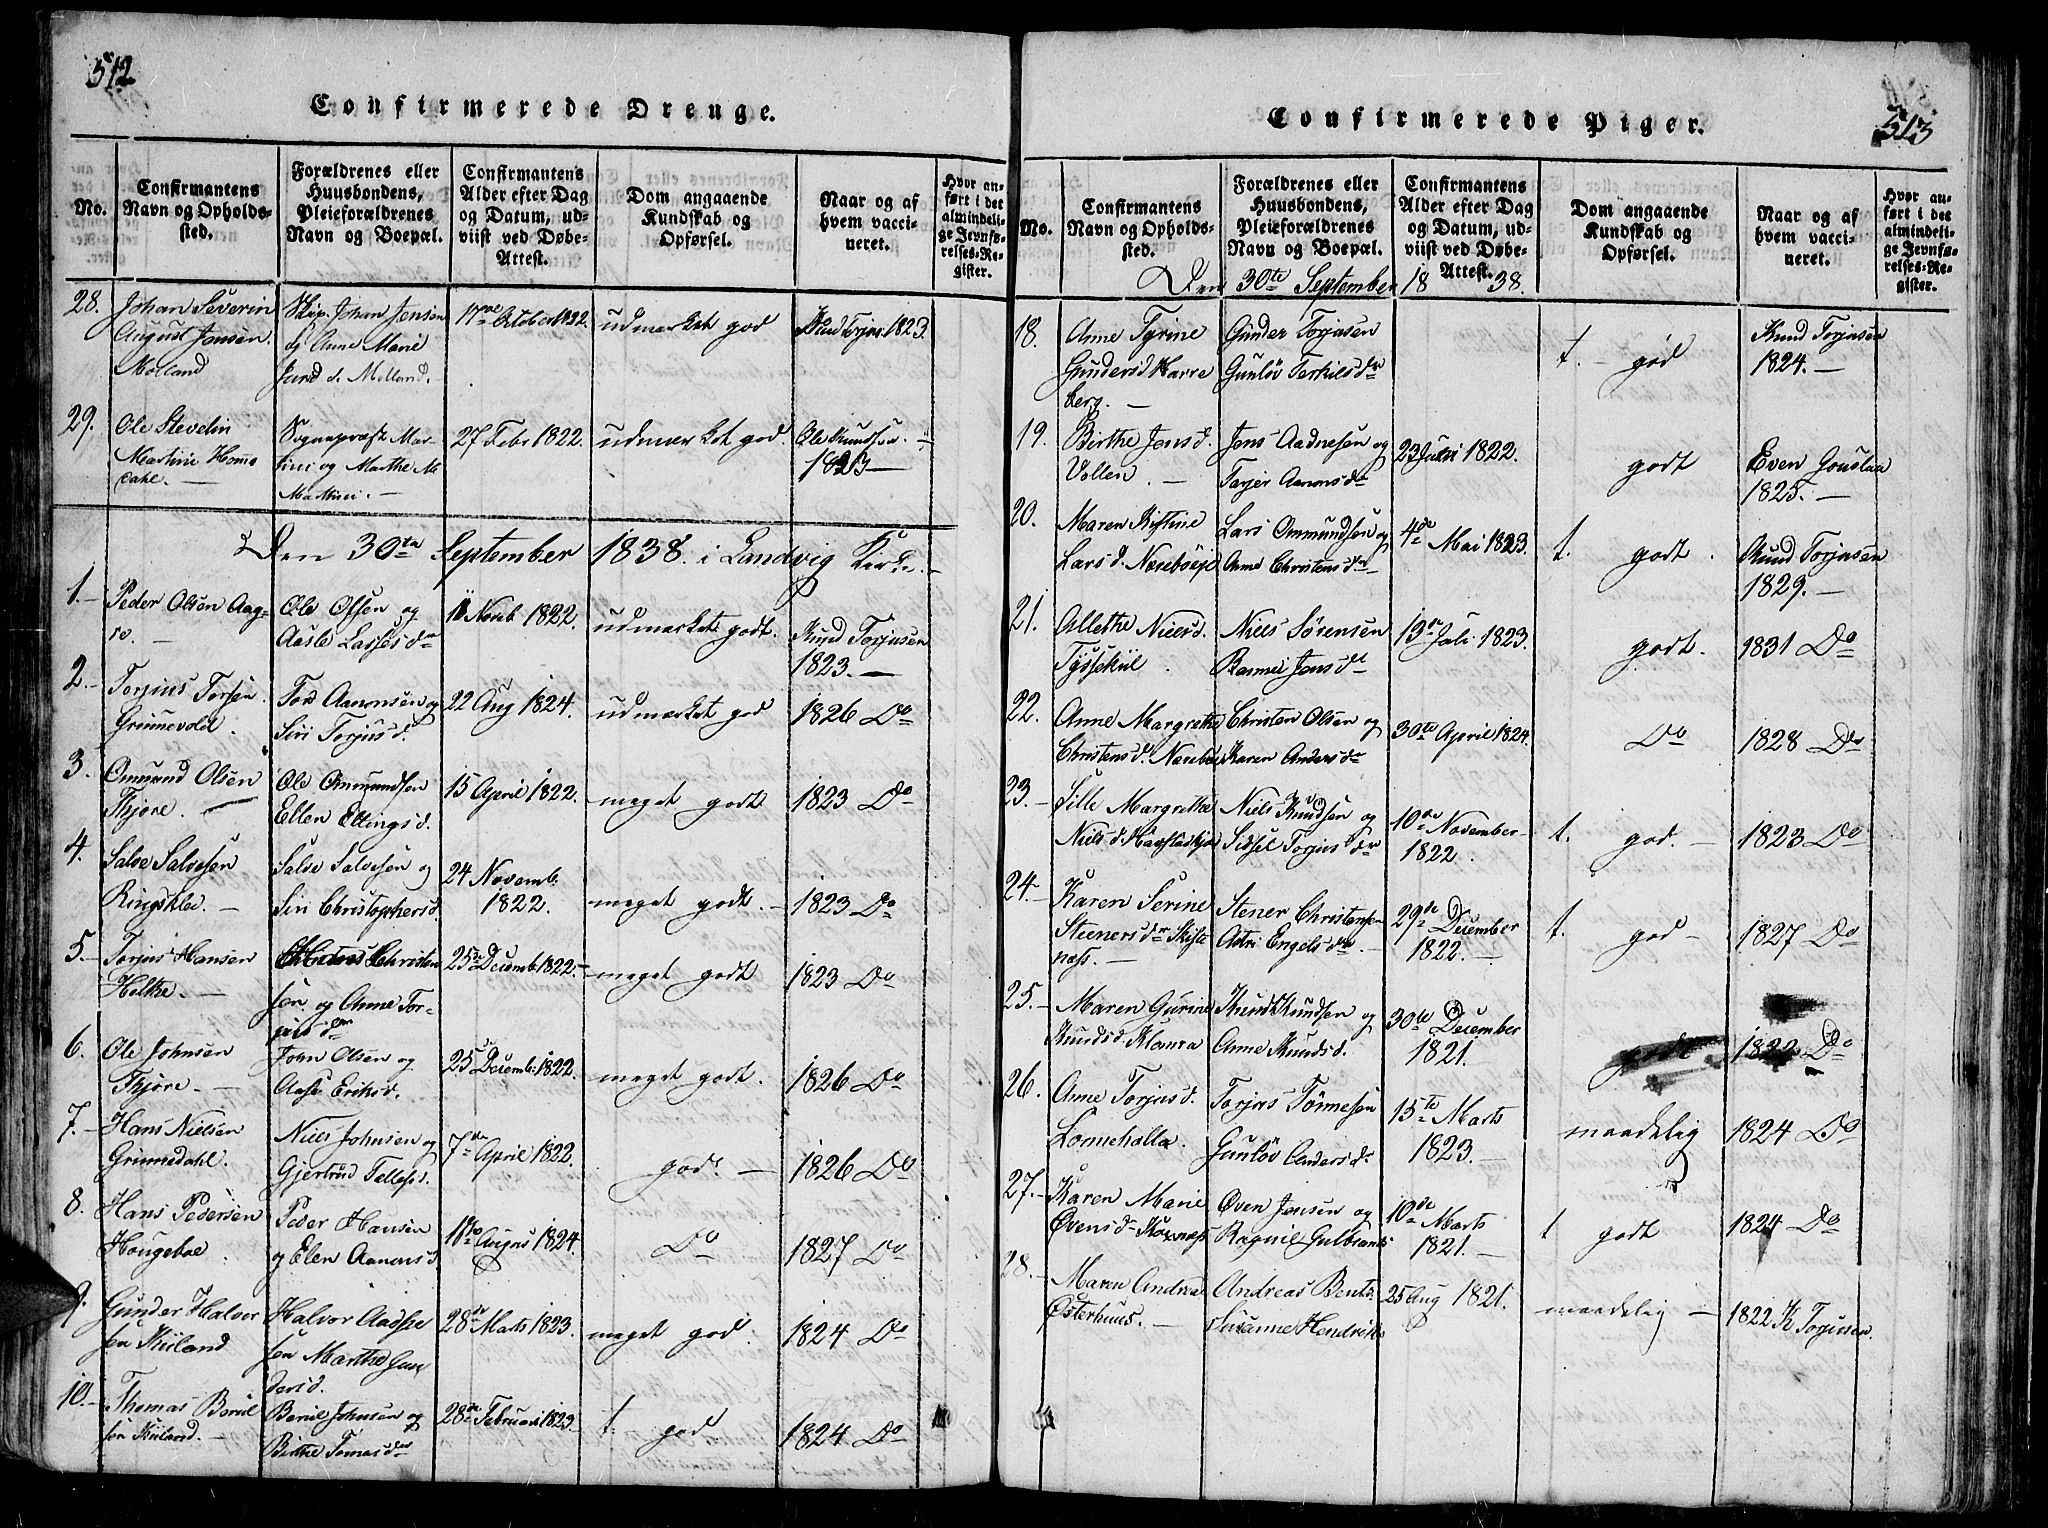 512
Confirmerede Drenge.
No.
Confirmantens
Navn og Opholds-
sted.
Forældrenes eller
Huusbondens,
Pleieforældrenes
Navn og Boepæl.
Confirmantens
Alder efter Dag
og Datum, ud-
viist ved Døbe-
Attest.
Dom angaaende
Kundskab og
Opførsel.
Naar og af
hvem vacci-
neret.
Hvor an-
ført i det
almindeli-
ge Jevnfø-
relses-Re-
gister.
28. Johan Severin
August Jensen
Molland
Skip. Johan Jensen
og Anne Marie
Jund d. Molland.
October 1822
udmærket god
Knud Torjus. 1823.
29. Ole Stevelin
Martini Homme
dahl.
Sognepræst Mar-
tini og Marthe M
Martini.
27 Febr 1822.
udmærket god
Ole Knudsen.
1823
Den 30te September 1838. i Landvig Kirke.
1. Peder Olsen Aag-
re.
Ole Olsen og
Aasle Lasses dr
11 Novb 1822.
udmærket godt.
Knud Torjusen
1823.
2. Torjus Torsen
Grimevold.
Tore Aanonsen og
Siri Torjus d.
22 Aug 1824.
udmærket god
1826 Do
3. Omund Olsen
Thjore.
Ole Ommundsen
Ellen Ellings d.
15 April 1822.
meget godt
1823 Do
4. Salve Salvesen
Ringsklev.
Salve Salvesen og
Siri Christophersd.
24 Novemb.
1822.
meget godt.
1823 Do
5. Torjus Hansen
Holte.
Christen
sen og Anne Tor-
jus dr
25de Decemb 1822.
meget godt
1823 Do
6. Ole Johnsen
Thjore.
John Olsen og
Aase Eriks d.
25de Decemb. 1822.
meget godt.
1826 Do
7. Hans Nielsen
Grimedahl.
Niels Johnsen og
Gjertrud Tellefs.
7de April 1822.
godt.
1826 Do
8. Hans Pedersen
Hougeboe.
Peder Hansen
og Elen Aanons d.
Augus 1824.
Do
1827 Do
9. Gunder Halvor
sen Kiiland
Halvor Aadne
sen Marthe Gun
ders d.
28de Marts 1823.
meget god.
1824 Do
10. Thomas Beruel
sen Kiiland.
Beruel Johnsen og
Birthe Tomas dr
28de Februari 1823
t. god
1824 Do
513
Confirmerede Piger.
No.
Confirmantens
Navn og Opholds-
sted.
Forældrenes eller
Huusbondens,
Pleieforældrenes
Navn og Boepæl.
Confirmantens
Alder efter Dag
og Datum, ud-
viist ved Døbe-
Attest.
Dom angaaende
Kundskab og
Opførsel.
Naar og af
hvem vacci-
neret.
Hvor an-
ført i det
almindeli-
ge Jevnfø-
relses-Re-
gister.
Den 30te September 1838.
18. Anne Tyrine
Gundersd Harre
berg.
Gunder Torjusen
Gunløv Terkils dr
t. god
Knud Torjusen
1824.
19. Birthe Jens d.
Vollen.
Jens Aadnesen og
Tarjer Aanons dr
23 Juli 1822.
godt
Even Gouslaa
1825.
20. Maren Kistine
Lars d. Nørebøe
Lars Ommundsen og
Anne Christens dr
4de Mai 1823.
t. godt.
Knud Torjusen
1829.
21. Allethe Nielsd.
Tyssekiil.
Niels Sørensen
Jens dr
13de Juli 1823.
godt.
1831 Do
22. Anne Margrethe
Christens d. Nørebøe
Christen Olsen og
Karen Anders dr
30te April 1824.
Do
1828 Do
23. Sille Margrethe
Niels d.
Niels Knudsen og
Sidsel Torjus dr
10de November
1822.
t. god.
1823 Do
24. Karen Serine
Steeners dr Kiste
næs.
Stener Christensen
Astri Engels dr
29de December
1822.
t. god
1827 Do
25. Maren Gurine
Knudsd
Knud Knudsen og
Anne Knuds d.
30te December
1821.
godt
1822 Do
26. Anne Torjus d.
Lonneholla.
Torjus Tønnesen
Gunløv Anders dr
15te Marts
1823.
maadelig
1824 Do
27. Karen Marie
Øvens d.
Øven Jensen og
Ragnil Gulbrands
10de Marts
1821.
t godt
1824 Do
28. Maren Andrea
Østerhuus.
Andreas Bents.
Susanne Hendriks
25 Aug 1821.
maadelig
1822 K Torjusen.